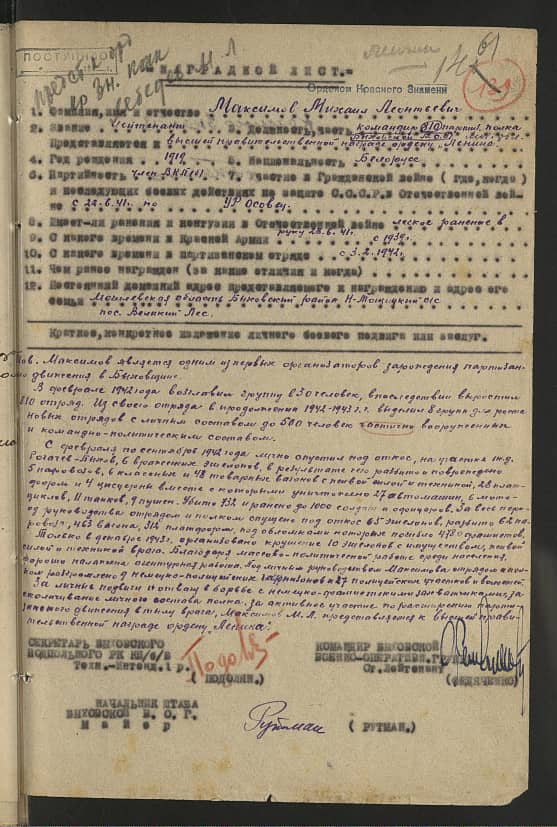 ПОСТУПИЛО
61
14
139
НАГРАДНОЙ ЛИСТ.
Орденом Красного Знамени
1. Фамилия, имя и отчество Максимов Михаил Леонтьевич
2. Звание Лейтенант 3. Должность, часть командир 810 партиз. полка
Представляется к высшей правительственной награде ордену „Ленина"
4. Год рождения 1919 5. Национальность Белорус
6. Партийность член ВКП(б) 7. Участие в Гражданской войне (где, когда)
и последующих боевых действиях по защите С.С.С.Р. в Отечественной вой-
не с 22.6.41г. по УР Осовец.
8. Имеет-ли ранения и контузии в Отечественной войне легкое ранение в
руку 28.6.41г.
9. С какого времени в Красной Армии с 1939г.
10. С какого времени в партизанском отряде с 3.2.1942г.
11. Чем ранее награжден (за какие отличия и когда)
12. Постоянный домашний адрес представляемого к награждению и адрес его
семьи Могилевская область Быховский район Н-Тощицкий с/с
пос. Великий Лес.
Краткое, конкретное изложение личного боевого подвига или заслуг.
тов. Максимов является одним из первых организаторов зарождения партизан-
ского движения в Быховщине.
В феврале 1942 года возглавил группу в 30 человек, впоследствии выростил
810 отряд. Из своего отряда в продолжении 1942-1943 г.г. выделил 8 групп для роста
новых отрядов с личным составом до 500 человек частично вооруженных
и командно-политическим составом.
С февраля по сентябрь 1942 года лично опустил под откос, на участке ж.д.
Рогачев-Быхов, 6 вражеских эшелонов, в результате чего разбито и повреждено
5 паровозов, 6 классных и 48 товарных вагонов с живой силой и техникой, 28 плат-
форм и 4 цистерны вместе с которыми уничтожено 27 автомашин, 6 мото-
циклов, 11 танков, 9 пушек. Убито 732 и ранено до 1000 солдат и офицеров. За весь пери-
од руководства отрядом и полком спущено под откос 65 эшелонов, разбито 62 па-
ровоза, 463 вагона, 312 платформ, под обломками которых погибло 4780 фашистов.
Только в декабре 1943г. организовано крушение 10 эшелонов с имуществом, живой
силой и техникой врага. Благодаря массово-политической работе среди населения,
хорошо налажена агентурная работа. Под личным руководством Максимова отрядом и пол-
ком разгромлено 9 немецко-полицейских гарнизонов и 27 полицейских участков и волостей.
За личные подвиги и отвагу в борьбе с немецко-фашистскими захватчиками, за
сколачивание личного состава полка. За активное участие по расширению парти-
занского движения в тылу врага, Максимов М.Л. представляется к высшей прави-
тельственной награде ордену „Ленина".
СЕКРЕТАРЬ БЫХОВСКОГО
ПОДПОЛЬНОГО РК КП/б/Б
Техн.-Интенд. 1 р.
( ПОДОЛЯН.)
КОМАНДИР БЫХОВСКОЙ
ВОЕННО-ОПЕРАТИВН. ГРУП
Ст. Лейтенант
(ФЕДЯЧЕНКО)
НАЧАЛЬНИК ШТАБА
БЫХОВСКОЙ В. О. Г.
Майор Рутман ( РУТМАН.)